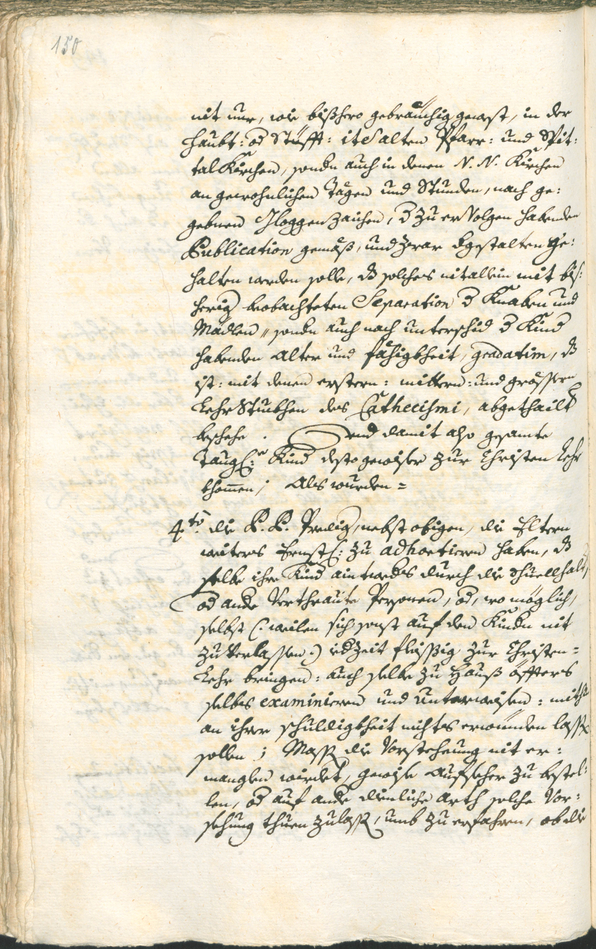 150
nit nur, wie bißhero gebräuchig gewest, in der
Haubt: od Stüfft: ite alten Pfarr: und Spit:
tal Kirchen, sondn auch in denen N. N. Kirchen
an gewohnlichen Tägen und Stunden, nach ge:
gebnen Gloggenzaichen, d zu ervolgen habenden
Publication gemäß, und zwar dgestalten ge:
halten werden solle, dz solches nit allein mit bis:
herig beobachteten Separation d Knaben und
Mädlen, sondn auch nach unterschid d Kind
habenden Alter und fähigkheit, gradatim, dz
ist: mit denen erstern: mittern: und grössern
Lehr Stückhen des Cathecismi, abgethailt
beschehe. Und damit also gesamte
Taugl: Kind desto gewiser zur Christen Lehr
khomen; Als wurden =
4to die P. P. Prediger, nebst obigen, die Eltern
weiters Ernstl: zu adhortieren haben, dz
selbe ihre Kind aintweders durch die Schuellhalter,
od andre Verthraute Persohnen, od, wo möglich,
selbst (: weilen sich sonst auf den Kindn nit
zu verlassen:) iedzeit fleissig zur Christen =
Lehr bringen: auch selbe zu Hauß öffters
selbes examinieren und unterweisen: mithin
an ihrer schuldigkheit nichts erwinden lassen
sollen; Massen die Vorstehung nit er:
manglen würdet, gewise Aufseher zu bestel:
len, od auf andre dienliche arth solche Vor:
sehung thuen zulassen, umb zu erfahren, ob die